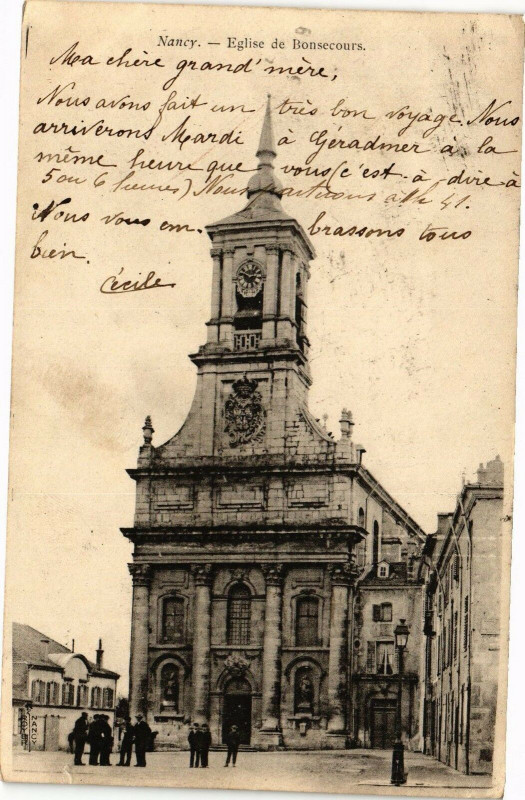 Nancy. — Eglise de Bonsecours.
Ma chère grand'mère,
Nous avons fait un très bon voyage. Nous
arriverons Mardi à Géradmer à la
même heure que vous (c'est-à-dire à
5 ou 6 heures) Nous partirons à 1h 41.
Nous vous em. brassons tous
bien.
Cécile
NANCY